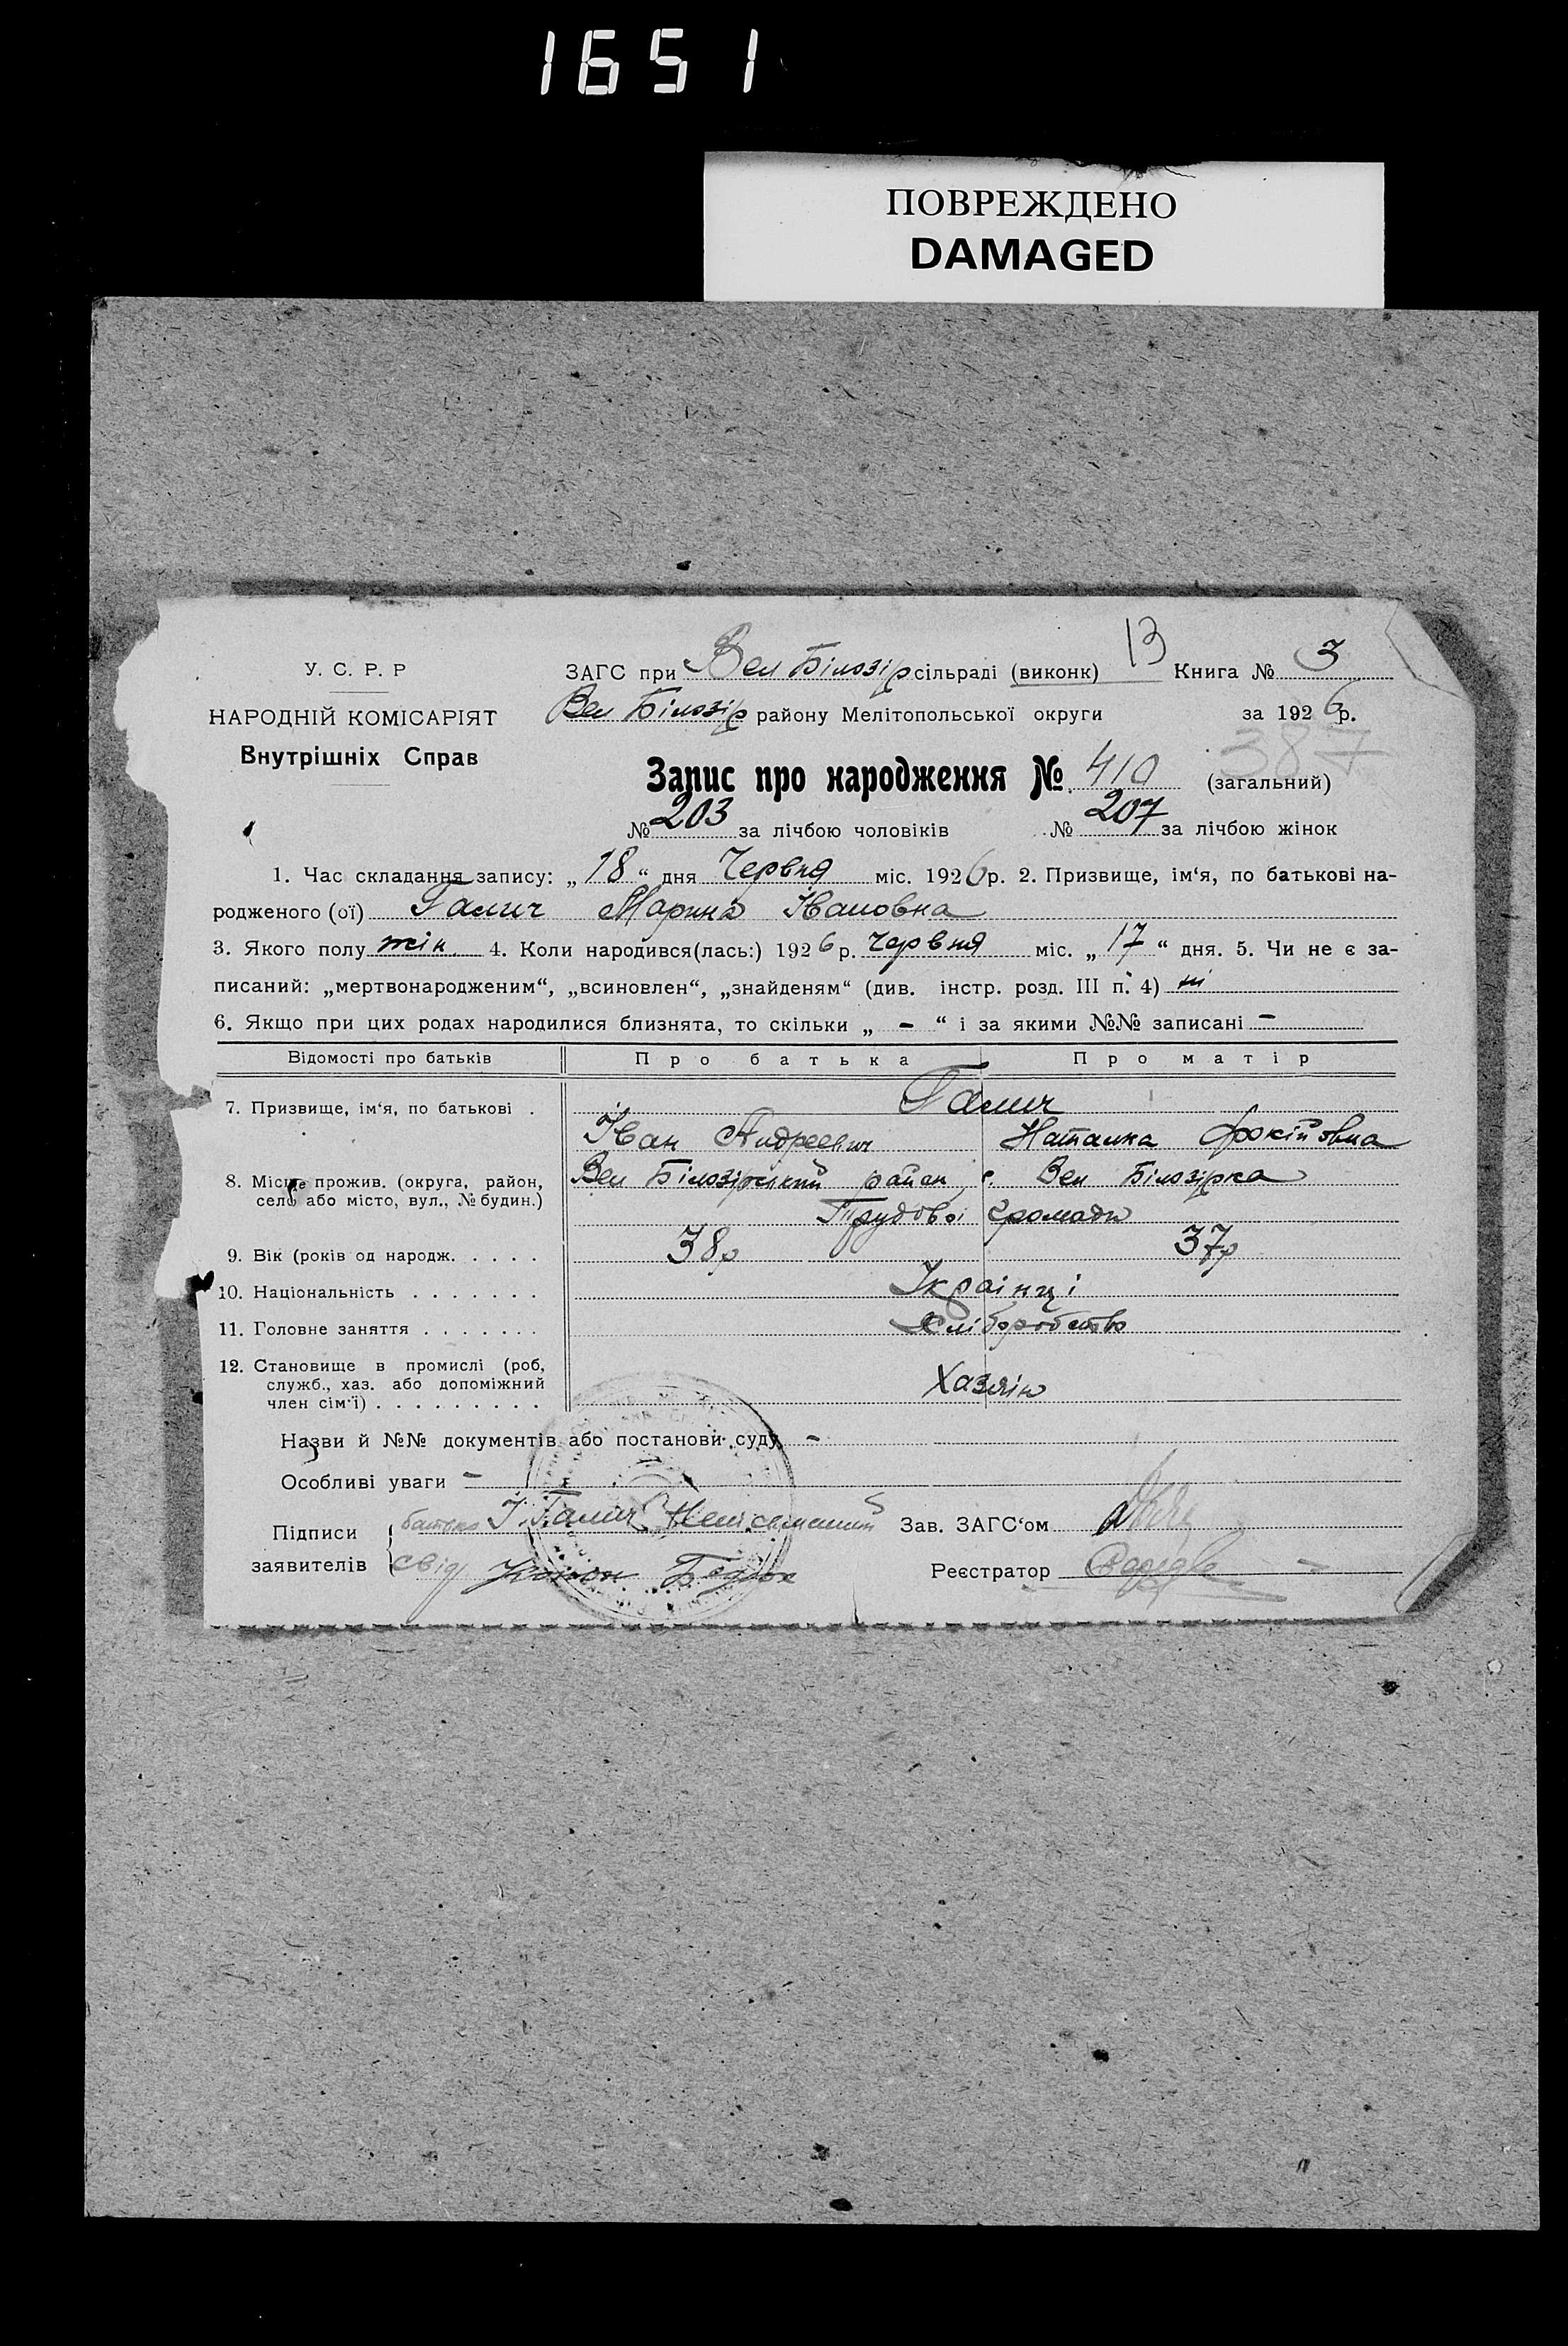 1651
ПОВРЕЖДЕНО
DAMAGED
У. С. Р. Р
НАРОДНІЙ КОМІСАРІЯТ
Внутрішніх Справ
ЗАГС при Вел Білозір сільраді (виконк) 13 Книга № 3
Вел Білозір району Мелітопольської округи за 1926 р.
387
Запис про народження № 410 (загальний)
№ 203 за лічбою чоловіків № 207 за лічбою жінок
1. Час складання запису: „18“ дня Червня міс. 1926 р. 2. Призвище, ім‘я, по батькові на-
родженого (ої) Галич Марина Івановна
3. Якого полу жін. 4. Коли народився(лась:) 1926 р. Червня міс. „17“ дня. 5. Чи не є за-
писаний: „мертвонародженим“, „всиновлен“, „знайденям“ (див. інстр. розд. III п. 4) ні
6. Якщо при цих родах народилися близнята, то скільки „ - “ і за якими №№ записані -
Відомості про батьків Про батька Про матір
7. Призвище, ім‘я, по батькові . Галич
Іван Андреевич Наталка Фокійовна
8. Місце прожив. (округа, район, село або місто, вул., № будин.) Вел Білозірський район, с. Вел Білозірка
Трудової громади
9. Вік (років од народж. . . . . 38р 37р
10. Національність . . . . . . . Українці
11. Головне заняття . . . . . . . Хліборобство
12. Становище в промислі (роб,
служб., хаз. або допоміжний
член сім‘ї) . . . . . . . . . Хазяін
Назви й №№ документів або постанови суду -
Особливі уваги -
Підписи батько І. Галич Неписьменний Зав. ЗАГС‘ом
заявителів свід Реєстратор